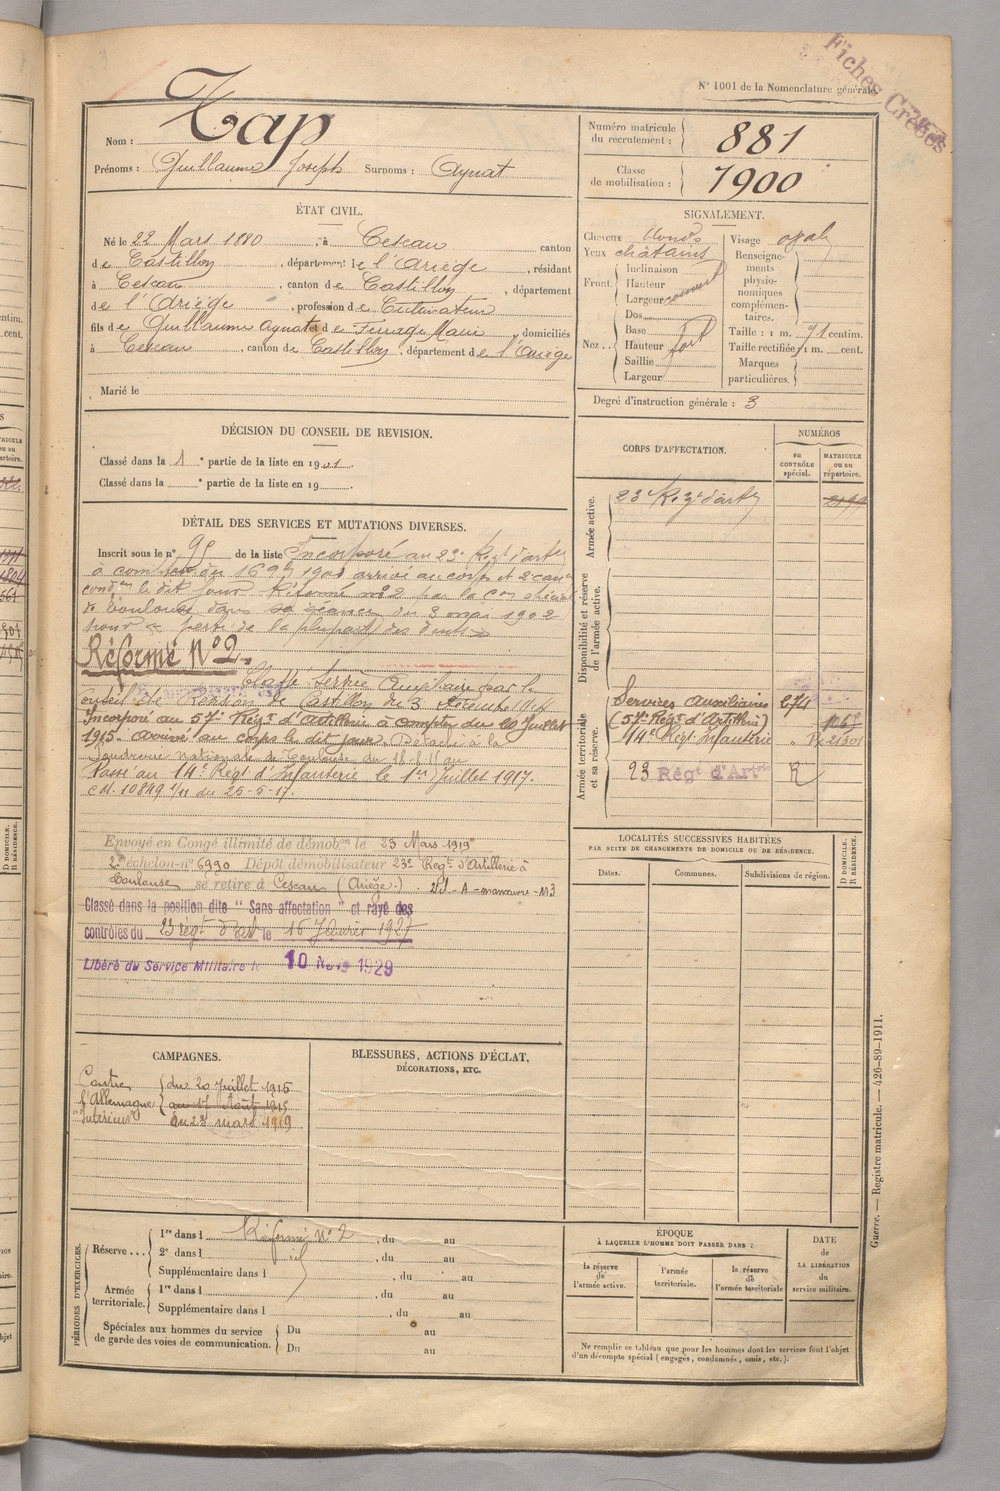 Fiches Créées
N° 1001 de la Nomenclature générale.
Nom : Tap
Prénoms : Guillaume Joseph Surnoms : Aynat
Numéro matricule du recrutement : 881
Classe de mobilisation : 1900
ÉTAT CIVIL.
Né le 22 Mars 1880, à Cescau, canton
de Castillon, département de l'Ariège, résidant
à Cescau, canton de Castillon, département
de l'Ariège, profession de Cultivateur
fils de Guillaume Aynat et de Ferrage Marie, domiciliés
à Cescau, canton de Castillon, département de l'Ariège
Marié le
SIGNALEMENT.
Cheveux blonds
Yeux châtains
Front. Inclinaison
Hauteur
Largeur couvert
Nez.. Dos
Base
Hauteur fort
Saillie
Largeur
Visage ovale
Renseignements physionomiques complémentaires.
Taille : 1 m. 71 centim.
Taille rectifiée : 1 m. cent.
Marques particulières.
Degré d'instruction générale : 3
DÉCISION DU CONSEIL DE REVISION.
Classé dans la 1e partie de la liste en 1901.
Classé dans la e partie de la liste en 19
DÉTAIL DES SERVICES ET MUTATIONS DIVERSES.
Inscrit sous le n° 95 de la liste Incorporé au 23e Regt d'artie
à compter du 16 9bre 1901 arrivé au corps et 2e can
condr le dit jour. Réformé n° 2 par la con spéciale
de Toulouse dans sa séance du 3 mai 1902
pour perte de la plupart des dents
Réformé N° 2.
Classé Service Auxiliaire par le
Conseil de Révision de Castillon du 3 décembre 1914
Incorporé au 57e Régt d'Artillerie à compter du 20 Juillet
1915 arrivé au corps le dit jour. Détaché à la
Poudrerie Nationale de Toulouse du
Passé au 14e Régt d'Infanterie le 1er Juillet 1917.
cd. 10849 1/11 du 25-5-17.
Envoyé en Congé illimité de démobon le 23 Mars 1919
2e échelon n° 6990 Dépôt démobilisateur 23e Régt d'Artillerie à
Toulouse se retire à Cescau (Ariège)
Classé dans la position dite "Sans affectation" et rayé des
contrôles du 23 régt d'art le 16 Février 1927
Libéré du Service Militaire le 10 Nove 1929
CORPS D'AFFECTATION.
NUMÉROS
au CONTRÔLE spécial.
MATRICULE ou au répertoire.
Armée active.
23e Régt d'artie
Disponibilité et réserve de l'armée active.
Armée territoriale et sa réserve.
Services Auxiliaires 674
(57e Régt d'Artillerie)
14e Régt Infanterie
23 Régt d'Artie R
LOCALITÉS SUCCESSIVES HABITÉES
PAR SUITE DE CHANGEMENTS DE DOMICILE OU DE RÉSIDENCE.
Dates.
Communes.
Subdivisions de région.
D DOMICILE.
R RÉSIDENCE.
CAMPAGNES.
Contre l'Allemagne
du 20 Juillet 1915
au 17 Août 1915
Intérieur
au 23 mars 1919
BLESSURES, ACTIONS D'ÉCLAT,
DÉCORATIONS, ETC.
PÉRIODES D'EXERCICES.
Réserve... 1re dans l Réformé N° 2, du au
2e dans l id, du au
Supplémentaire dans l, du au
Armée territoriale. 1re dans l, du au
Supplémentaire dans l, du au
Spéciales aux hommes du service de garde des voies de communication. Du au
Du au
ÉPOQUE
À LAQUELLE L'HOMME DOIT PASSER DANS :
la réserve de l'armée active.
l'armée territoriale.
la réserve de l'armée territoriale
DATE
de
LA LIBÉRATION
du
service militaire.
Ne remplir ce tableau que pour les hommes dont les services font l'objet
d'un décompte spécial (engagés, condamnés, omis, etc.).
Guerre. — Registre matricule. — 426-89-1911.